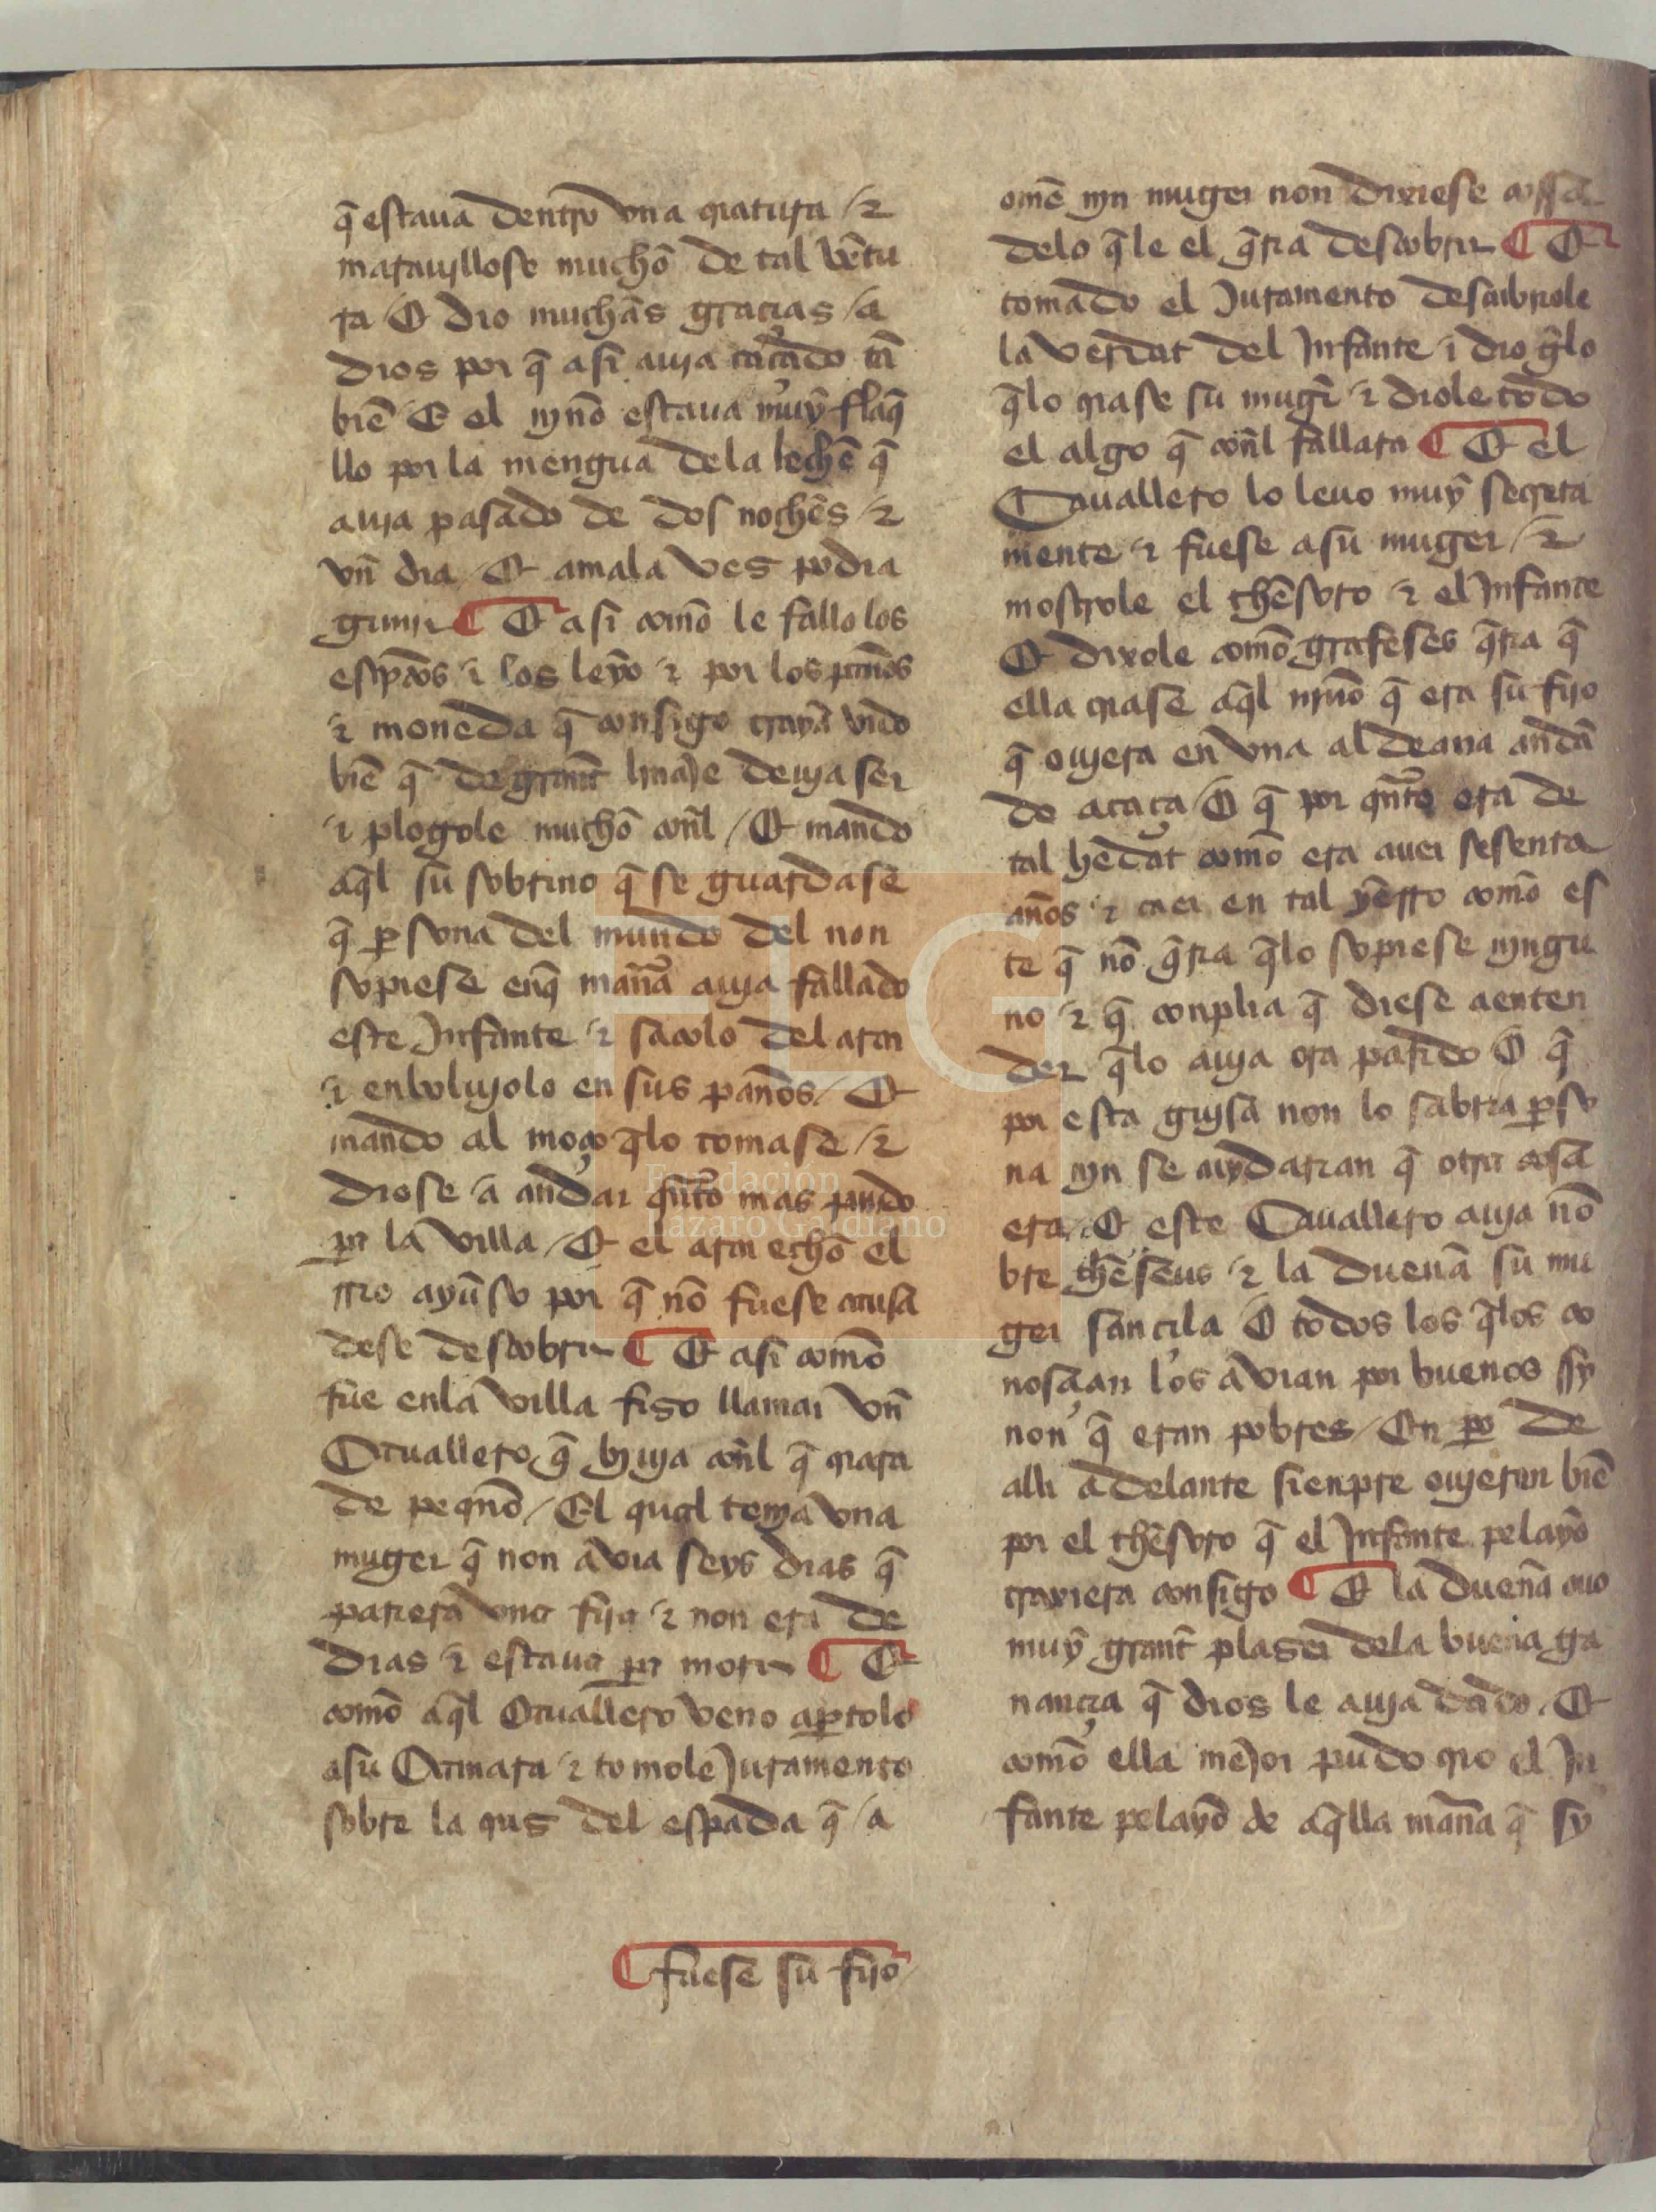 q̃ estaua dentro vna criatura / ⁊
marauyllose muchõ de tal vẽtu
ra / E dio muchãs gracias / a
dios por q̃ asi auja caçado tã
biẽ E el njnõ estaua muỹ flaq̃
llo por la mengua dela lechẽ q̃
auja pasado de dos nochẽs / ⁊
vñ dia / Et amala ves podia
gimir ¶ Et asi comõ le fallo los
escriptos ⁊ los leyõ ⁊ por los panõs
⁊ moneda q̃ consigo trayã vido
biẽ q̃ de grant̃ linaje deuja ser
⁊ plogole muchõ conl̃ / Et mando
aq̃l sũ sobrino q̃ se guardase
q̃ ꝑsona del mundo del non
sopiese enq̃ manã auja fallado
este Infante ⁊ sacolo del arca
⁊ enboluјolo en sus panõs / Et
mando al moço q̃lo tomase / ⁊
diose / a andar qñto mas pudo
ꝑa la villa / Et el arca echõ el
rrio ayũso por q̃ nõ fuese causa
dese descobrir ¶ Et asi comõ
fue enla villa fiso llamar vñ
Cauallero q̃ byuja conl̃ q̃ criara
de peqñõ / El qual tenja vna
muger q̃ non avia seys dias q̃
parierã vna fija ⁊ non era de
dias ⁊ estaua ꝑa morir ¶ Et
comõ aq̃l Cauallero veno aꝑtolo
asu Camara ⁊ tomole Juramento
sobre la crus del espada q̃ / a
omẽ njn muger non dixiese cossa
delo q̃ le el q̃ria descobrir ¶ Et
tomado el Juramento descubriole
la verdat del Infante ⁊ dio q̃lo
q̃lo criase sũ mugr̃ ⁊ diole todo
el algo q̃ conl̃ fallara ¶ Et el
Cauallero lo leuo muỹ secreta
mente ⁊ fuese asũ muger / ⁊
mostrole el thẽsoro ⁊ el Infante
Et dixole comõ grafeses q̃ria q̃
ella criase aq̃l njnõ q̃ era sũ fijo
q̃ oujera en vna aldeana andã
do acaça / E q̃ por qñto era de
tal hedat comõ era auer sesenta
anõs ⁊ caer en tal yẽrro comõ es
te q̃ nõ q̃ria q̃lo sopiese njngu
no ⁊ q̃ conplia q̃ diese aenten
der q̃lo auja ora parido E q̃
por esta gujsa non lo sabria ꝑso
na njn se cuydarian q̃ otra cosa
era / Et este Cauallero auja nõ
bre thẽseus ⁊ la duenã sũ mu
ger sancila E todos los q̃los co
nosçian los avian por buenos sy
non q̃ eran pobres / En ꝑo de
alli adelante sienpre oujeron biẽ
por el thẽsoro q̃ el Infante pelayõ
traxiera consigo ¶ Et la duenã ouo
muỹ grant̃ plaser dela buena ga
nançia q̃ dios le auja dado / Et
comõ ella mejor pudo crio el In
fante pelayõ de aq̃lla manã q̃ sy
¶ fuese sũ fijo